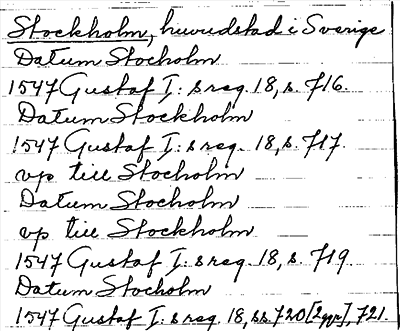 Stockholm, huvudstad i Sverige
Datum Stocholm
1547 Gustaf I: s reg. 18, s. 716.
Datum Stockholm
1547 Gustaf I: s reg. 18, s. 717.
vp till Stocholm
Datum Stockholm
vp till Stockholm
1547 Gustaf I: s reg. 18, s. 719.
Datum Stocholm
1547 Gustaf I: s reg. 18, ss. 720 [2 ggr], 721.